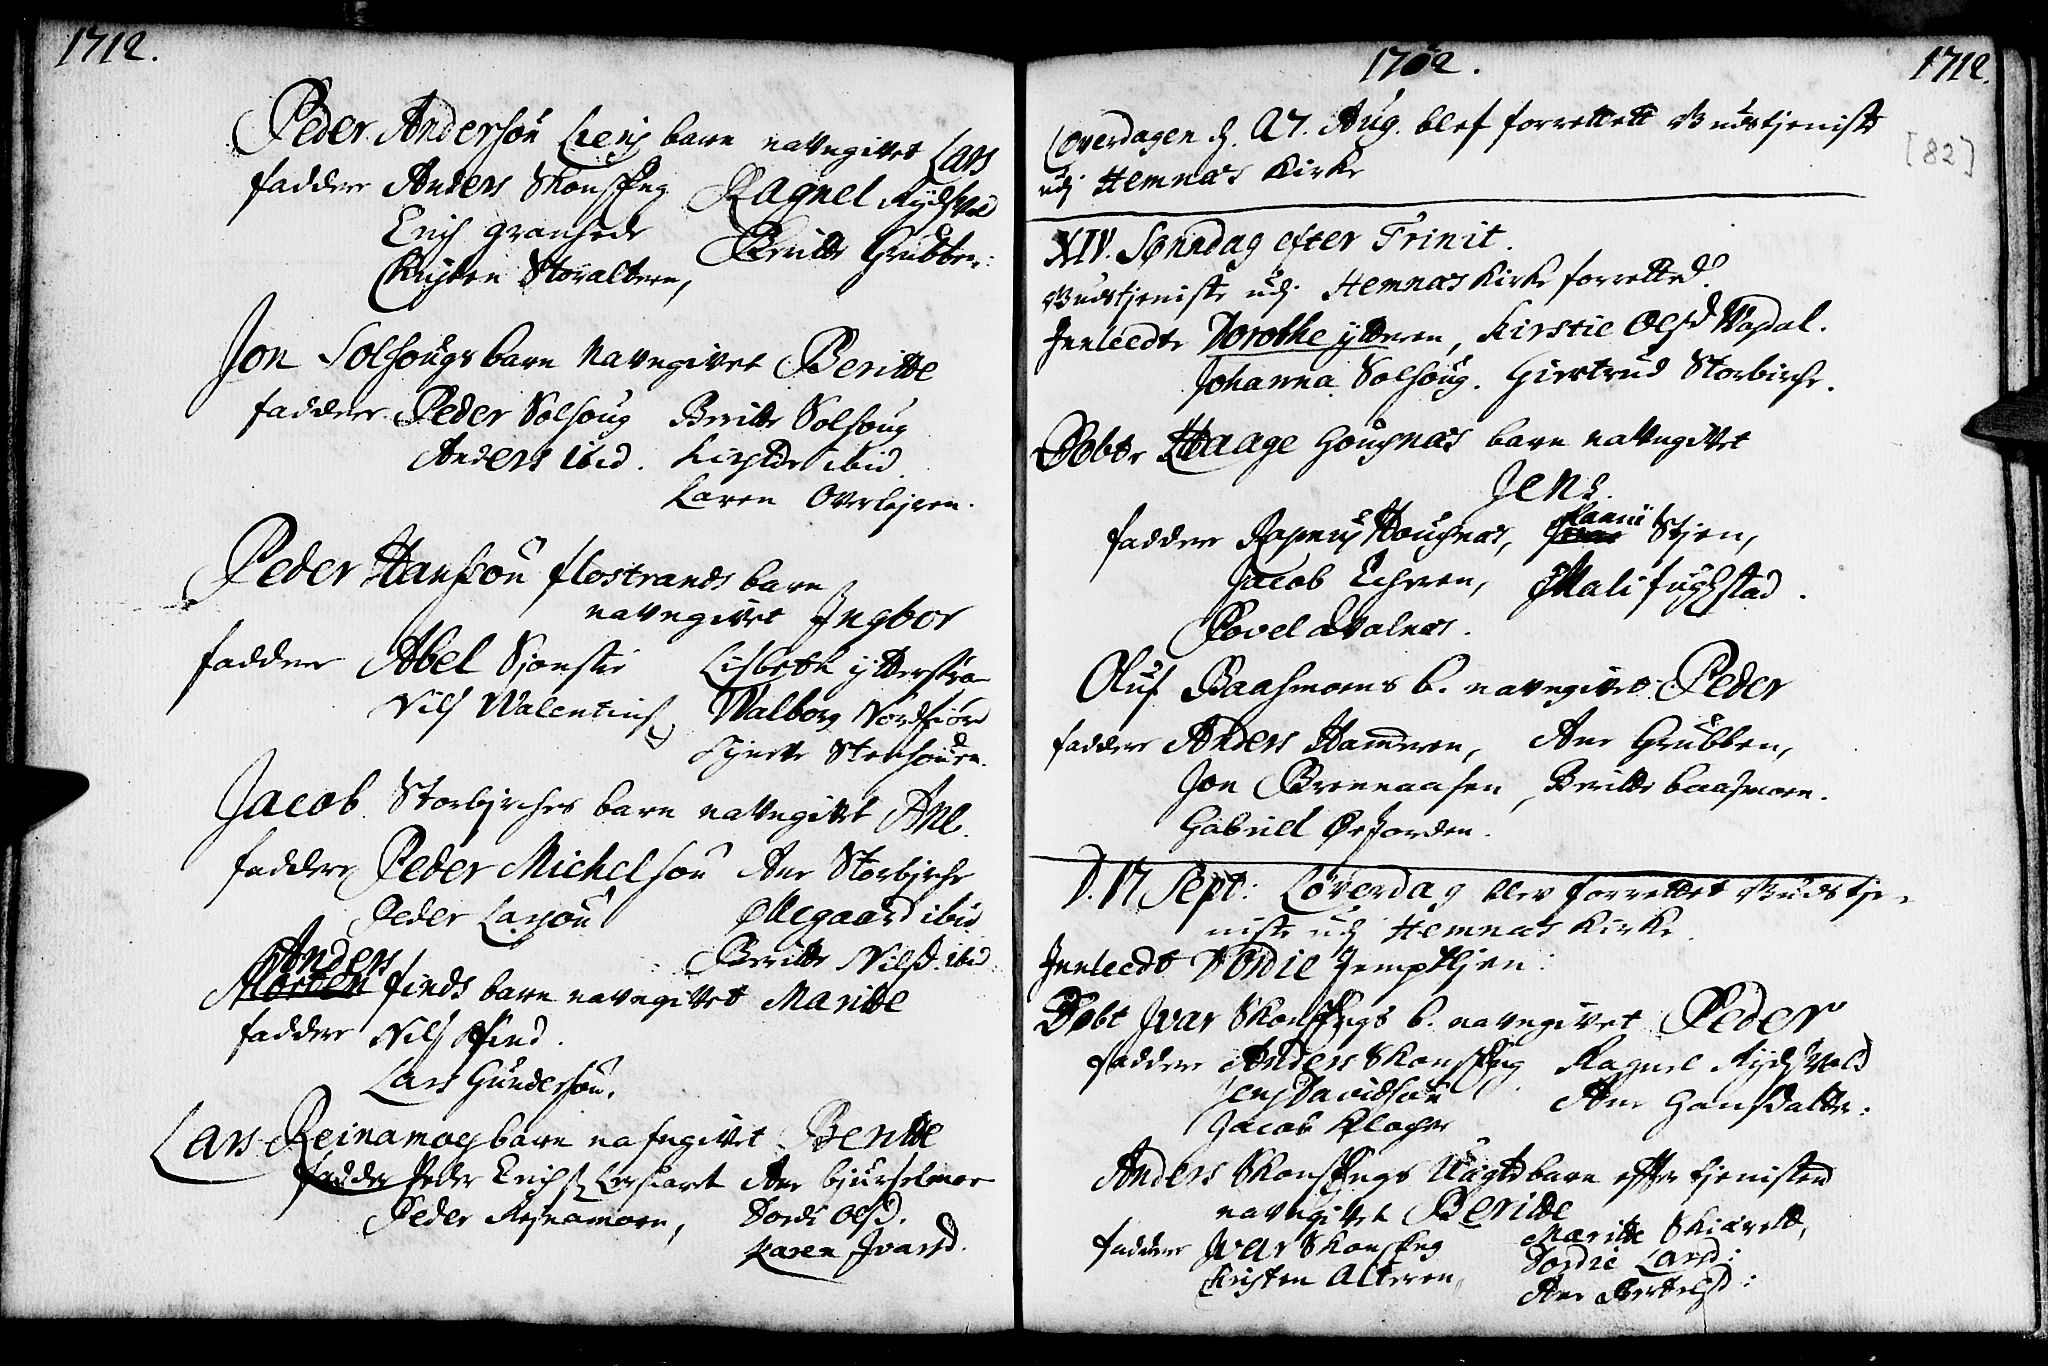 1712.
Peder Andersøn barn navngivet Lars
faddere Anders Skonseng Ragnel Rydsvold
Erich granhede Beritte Grubben:
Christen Storalteren,
Jon Solsougs barn navngivet Beritte
faddere Peder Solsoug Beritte Solsoug
Anders ibid. ibid
Karen Overlejren.
Peder Hansøn flostrands barn
navngivet Ingbor
faddere Abel Sionstie Lisbeth ytterstra
Nils Walentins Walborg Nordfiord
Stensouren.
Jacob Storbjrches barn navngivet Ane.
faddere Peder Michelsøn Ane Storbjrche
Peder Larsøn Ollegaard ibid
Beritte Nilsd. ibid
Anders
Morten finds barn navngivet Maritte
faddere Nils find.
Lars Gundersøn.
Lars Reinamoes barn nafngivet Beritte
fadder Peder Erichs Ane bjurselmoe
Peder Rejnamoen, Dorde Olsd.
Karen Ivarsd.
1712.
1712.
[82]
Løverdagen d. 27. Aug. blef forrettett Gudstjeniste
udj Hemnæs Kirke
XIV. Sønndag efter Trinit.
Gudstjeniste udj Hemnæs Kirke forretted.
Innleedte Dorothe ytteren, Kirstie Olsd Wasdal.
Johanna Solsoug. Giertrud Storbirche.
Døbte Haage Housnæs barn navngivet
Jens.
faddere Rasmus Housnæs, Maarii Stien,
Jacob Echren, Mali fuglstad.
Povel Dvalnæs.
Oluf Baasmoens b. navngivet Peder
faddere Anders Hameren, Ane Grubben,
Jon Brennaasen, Beritte baasmoen.
Gabriel Ørjorden.
D. 17 Sept: Løverdag blev forrettet Gudstje-
niste udj Hemnæs Kirke
Innleedt Dordie Jempthjen:
Døbt Ivar Skonsengs b. navngivet Peder
faddere Anders Skonseng Ragnel Rydsvold
Jens Davidsøn Ane Hansdatter:
Jacob Klocher
Anders Skonsengs Uægte barn effter tjenisten
navngivet Beritte
faddere Ivar Skonseng Maritte Skiærett,
Christen Alteren, Dordie Larsd:
Ane Bertelsd: